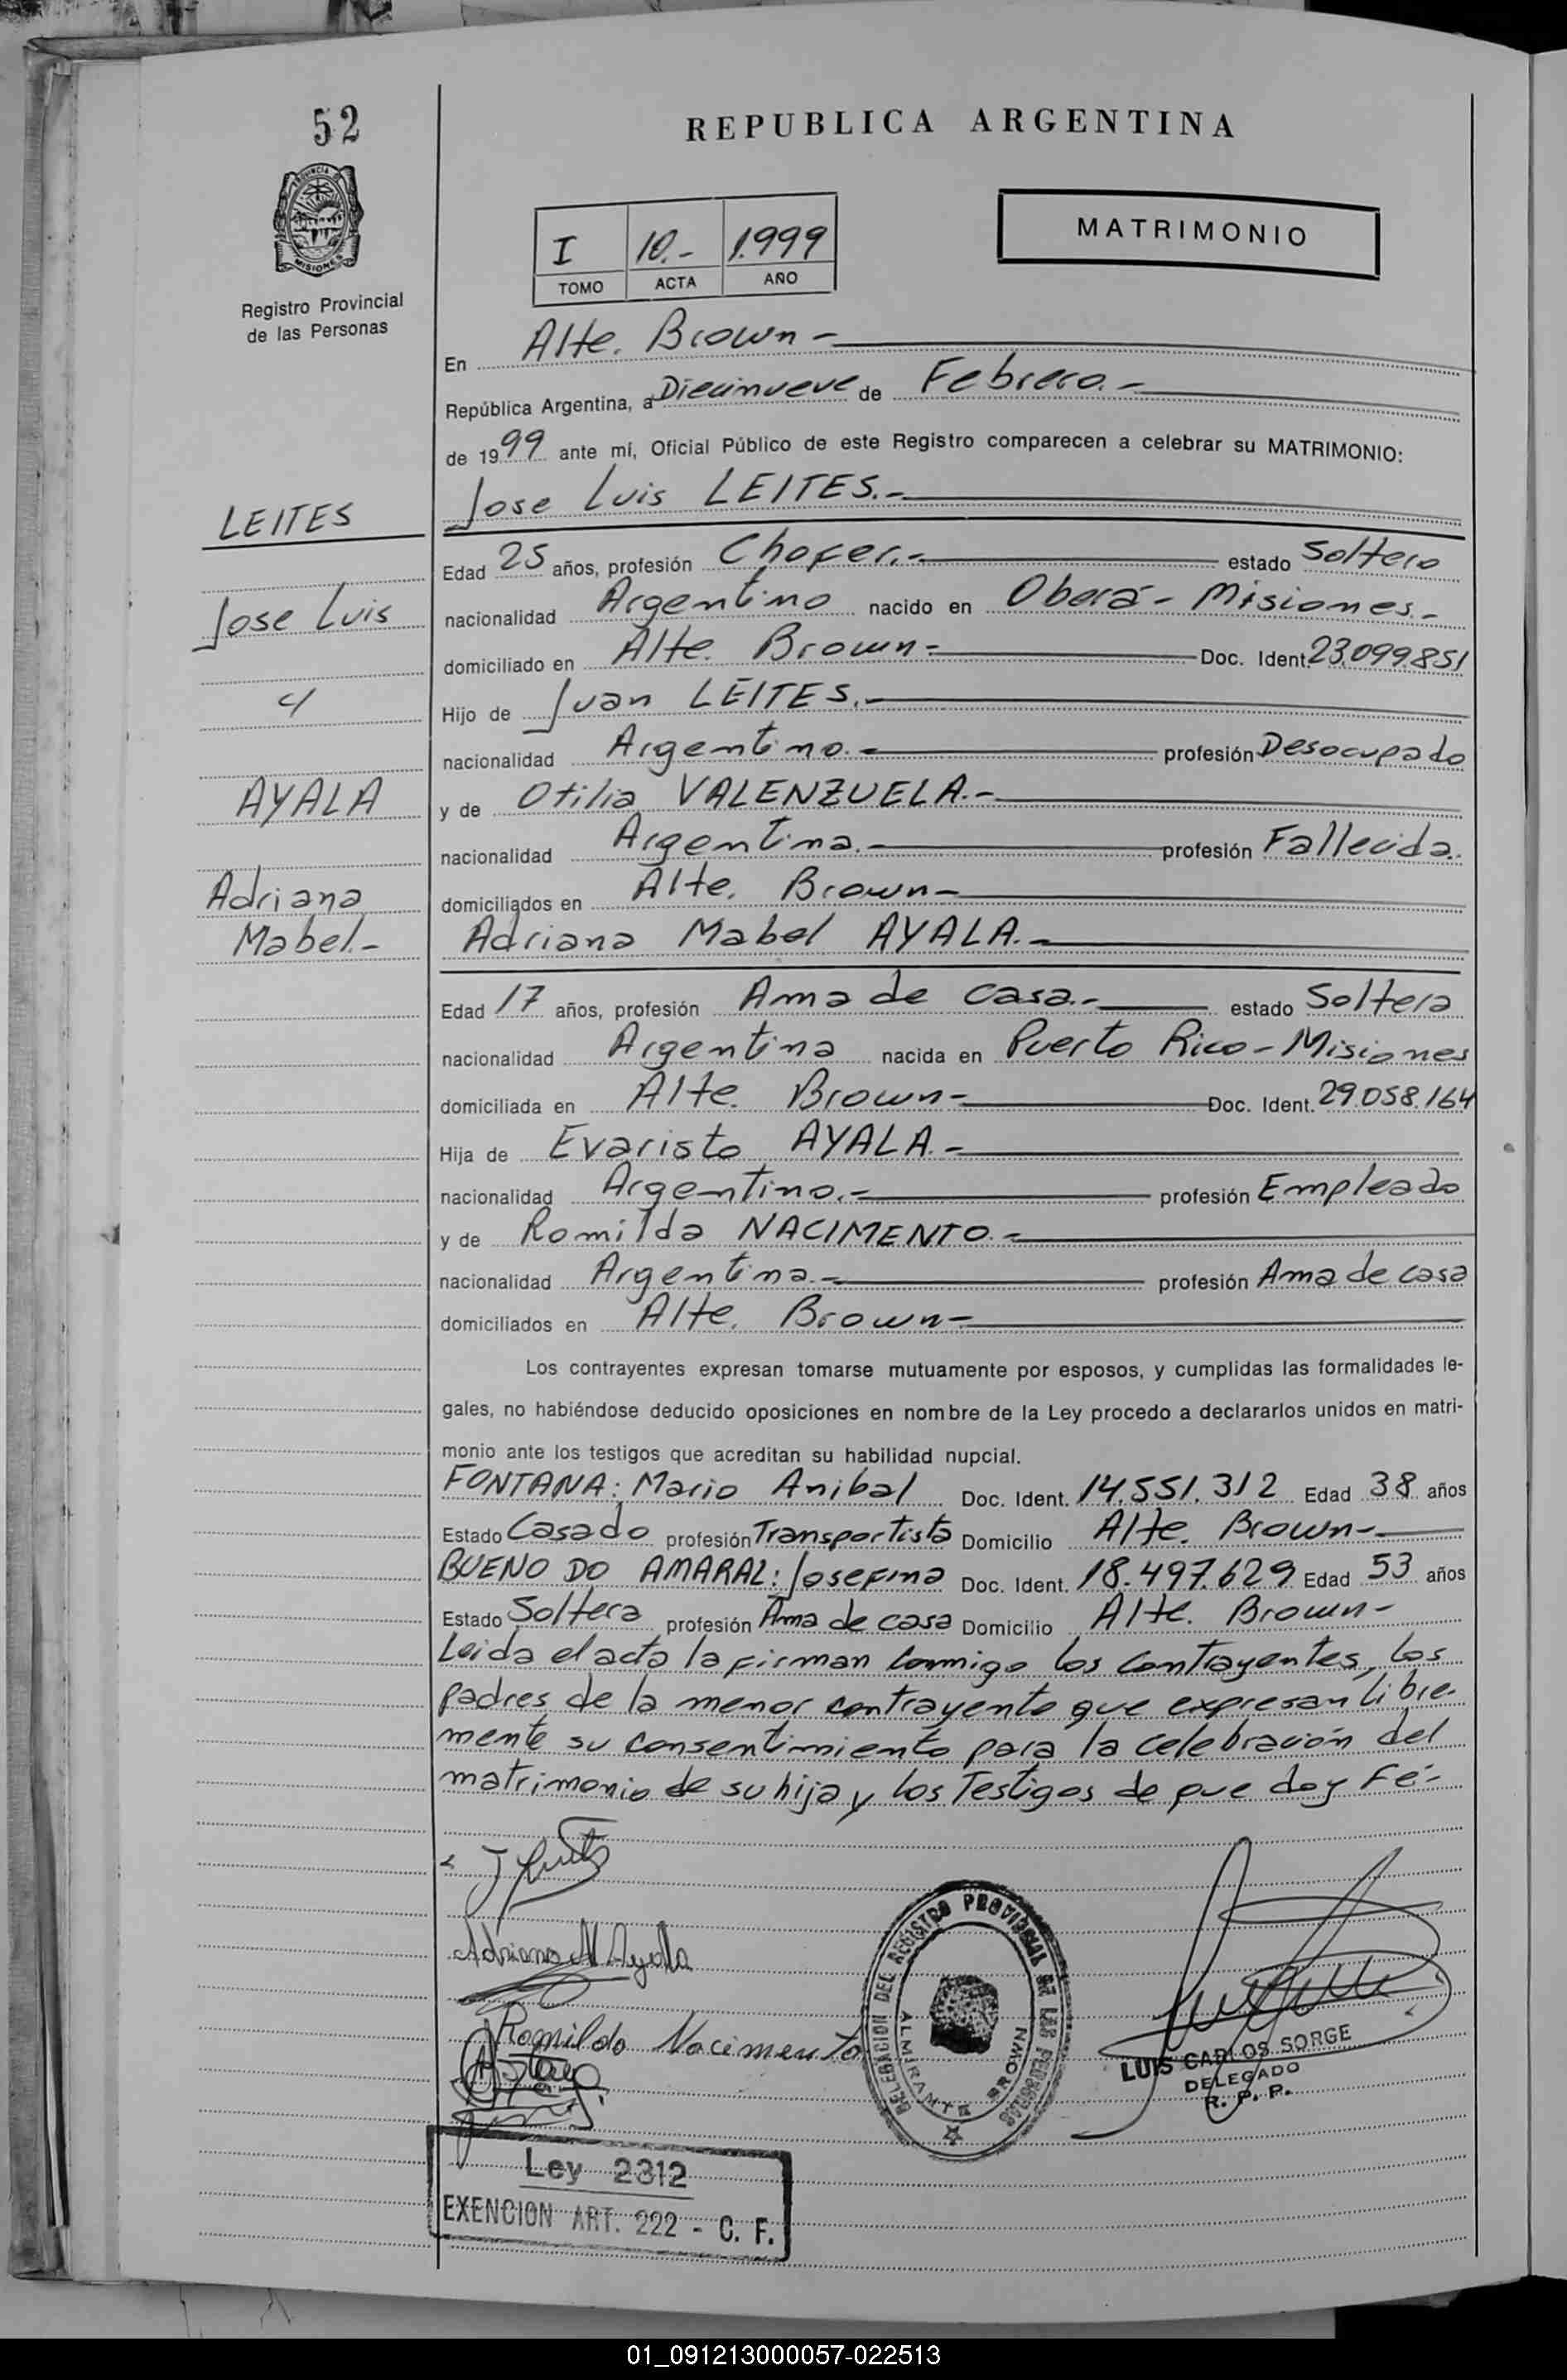 52
REPUBLICA ARGENTINA
PROVINCIA DE
MISIONES
Registro Provincial
de las Personas
I 10.- 1.999
TOMO ACTA AÑO
MATRIMONIO
En Alte. Brown -
República Argentina, a Diecinueve de Febrero.-
de 19 99 ante mí, Oficial Público de este Registro comparecen a celebrar su MATRIMONIO:
LEITES
Jose Luis
y
AYALA
Adriana
Mabel.-
Jose Luis LEITES.-
Edad 25 años, profesión Chofer.- estado Soltero
nacionalidad Argentino nacido en Oberá - Misiones.-
domiciliado en Alte. Brown - Doc. Ident. 23.099.851
Hijo de Juan LEITES.-
nacionalidad Argentino.- profesión Desocupado
y de Otilia VALENZUELA.-
nacionalidad Argentina.- profesión Fallecida.
domiciliados en Alte. Brown -
Adriana Mabel AYALA.-
Edad 17 años, profesión Ama de casa.- estado Soltera
nacionalidad Argentina nacida en Puerto Rico - Misiones
domiciliada en Alte. Brown - Doc. Ident. 29.058.164
Hija de Evaristo AYALA.-
nacionalidad Argentino.- profesión Empleado
y de Romilda NACIMENTO.-
nacionalidad Argentina.- profesión Ama de casa
domiciliados en Alte. Brown -
Los contrayentes expresan tomarse mutuamente por esposos, y cumplidas las formalidades le-
gales, no habiéndose deducido oposiciones en nombre de la Ley procedo a declararlos unidos en matri-
monio ante los testigos que acreditan su habilidad nupcial.
FONTANA: Mario Anibal Doc. Ident. 14.551.312 Edad 38 años
Estado Casado profesión Transportista Domicilio Alte. Brown -
BUENO DO AMARAL: Josefina Doc. Ident. 18.497.629 Edad 53 años
Estado Soltera profesión Ama de casa Domicilio Alte. Brown -
Leida el acta la firman conmigo los contrayentes, los
padres de la menor contrayente que expresan libre-
mente su consentimiento para la celebración del
matrimonio de su hija y los Testigos de que doy Fé-
Adriana M Ayala
Romilda Nacimento
DELEGACION DEL REGISTRO PROVINCIAL DE LAS PERSONAS
ALMIRANTE BROWN
LUIS CARLOS SORGE
DELEGADO
R. P. P.
Ley 2312
EXENCION ART. 222 - C. F.
01_091213000057-022513